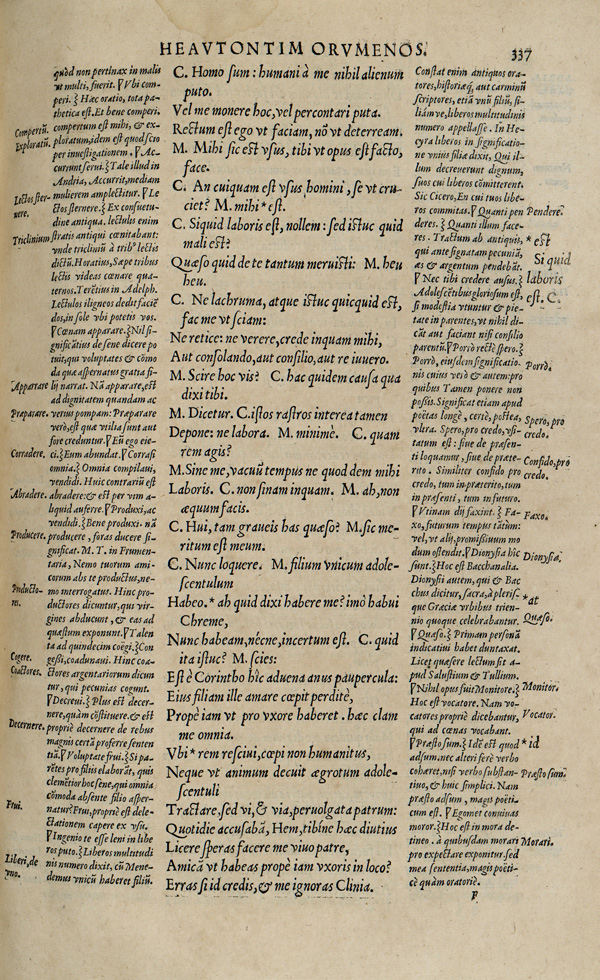 HEAVTONTIM ORVMENOS.
337
Compertũ.
Exploratũ.
Lectos ster-
nere.
Triclinium
Apparare
Præparare.
Corradere.
Abradere.
Producere.
Cogere.
Coactores.
Decernere.
Frui.
Liberi, de
quòd non pertinax in malis
vt multi, fuerit. ꝟ Vbi com-
peri. ⁊ Hæc oratio, tota pa-
thetica est. Et bene comperi.
compertum est mihi, & ex-
ploratum, idem est quod scio
per inuestigationem. ꝟ Ac-
currunt serui. ⁊ Tale illud in
Andria, Accurrit, mediam
mulierem amplectitur. ꝟ Le
ctos sternere. ⁊ Ex consuetu-
dine antiqua. lectulis enim
stratis antiqui cœnitabant:
vnde tricliniũ à tribꝰ lectis
dictũ. Horatius, Sæpe tribus
lectis videas cœnare qua-
ternos. Terẽtius in Adelph.
Lectulos iligneos dedit facie
dos, in sole vbi potetis vos.
ꝟ Cœnam apparare. ⁊ Nil si-
gnificãtius de sene dicere po
tuit, qui voluptates & cõmo
da quæ aspernatus gratia fi-
lij narrat. Nã apparare, est
ad dignitatem quandam ac
verius pompam: Præparare
verò, est quæ vtilia sunt aut
fore creduntur. ꝟ Eũ ego eie-
ci. ⁊ Eum abundar. ꝟ Corrasi
omnia. ⁊ Omnia compilaui,
vendidi. Huic contrariũ est
abradere: & est per vim a-
liquid auferre. ꝟ Produxi, ac
vendidi. ⁊ Bene produxi. nã
producere, foras ducere si-
gnificat. M. T. in Frumen-
taria, Nemo tuorum ami-
corum abs te productus, ne-
mo interrogatus. Hinc pro-
ductores dicuntur, qui vir-
gines abducunt, & eas ad
quæstum exponunt. ꝟ Talen
ta ad quindecim coëgi. ⁊ Con
gessi, coadunaui. Hinc coa-
ctores argentariorum dicun
tur, qui pecunias cogunt.
ꝟ Decreui. ⁊ Plus est decer-
nere, quàm cõstituere. & est
propriè decernere de rebus
magnis certã proferre senten
tiã. ꝟ Voluptate frui. ⁊ Si pa-
rẽtes pro filiis elaborãt, quis
clemẽtior hoc sene, qui omnia
cõmoda absente filio asper-
natur? Frui, propriè est dele-
ctationem capere ex vsu.
ꝟ Ingenio te esse leni in libe
ros puto. ⁊ Liberos multitudi
nis numero dixit, cũ Mene-
demus vnicũ haberet filiũ.
C. Homo sum: humani à me nihil alienum
puto.
Vel me monere hoc, vel percontari puta.
Rectum est ego vt faciam, nõ vt deterream.
M. Mihi sic est vsus, tibi vt opus est facto,
face.
C. An cuiquam est vsus homini, se vt cru-
ciet? M. mihi * est.
C. Siquid laboris est, nollem: sed istuc quid
mali est?
Quæso quid de te tantum meruisti: M. heu
heu.
C. Ne lachruma, atque istuc quicquid est,
fac me vt sciam:
Ne retice: ne verere, crede inquam mihi,
Aut consolando, aut consilio, aut re iuuero.
M. Scire hoc vis? C. hac quidem causa qua
dixi tibi.
M. Dicetur. C. istos rastros interea tamen
Depone: ne labora. M. minimè. C. quam
rem agis?
M. Sine me, vacuũ tempus ne quod dem mihi
Laboris. C. non sinam inquam. M. ah, non
æquum facis.
C. Hui, tam graueis has quæso? M. sic me-
ritum est meum.
C. Nunc loquere. M. filium vnicum adole-
scentulum
Habeo. * ah quid dixi habere me? imò habui
Chreme,
Nunc habeam, nécne, incertum est. C. quid
ita istuc? M. scies:
Est è Corintho hîc aduena anus paupercula:
Eius filiam ille amare cœpit perditè,
Propè iam vt pro vxore haberet. hæc clam
me omnia.
Vbi * rem resciui, cœpi non humanitus,
Neque vt animum decuit ægrotum adole-
scentuli
Tractare, sed vi, & via, peruolgata patrum:
Quotidie accusabã, Hem, tibíne hæc diutius
Licere speras facere me viuo patre,
Amicã vt habeas propè iam vxoris in loco?
Erras si id credis, & me ignoras Clinia.
Constat enim antiquos ora-
tores, historiæq́, aut carminũ
scriptores, etiã vnũ filiũ, fi-
liámve, liberos multitudinis
numero appellasse. In He-
cyra liberos in significatio-
ne vnius filiæ dixit, Qui il-
lum decreuerunt dignum,
suos cui liberos cõmitterent.
Sic Cicero, En cui tuos libe-
ros committas. ꝟ Quanti pen
deres. ⁊ Quanti illum face-
res. Tractum ab antiquis,
qui ante signatam pecuniã,
æs & argentum pendebãt.
ꝟ Nec tibi credere ausus. ⁊
Adolescẽtibus gloriosum est,
si modestia vtuntur & pie-
tate in parentes, vt nihil di-
cãt aut faciant nisi consilio
parentũ. ꝟ Porrò rectè spero. ⁊
Porrò, eiusdem significatio-
nis cuius verò & autem: pro
quibus Tamen ponere non
possis. Significat etiam apud
poëtas longè, certè, postea,
vltra. Spero, pro credo, vsi-
tatum est: siue de præsen-
ti loquamur, siue de præte-
rito. Similiter confido pro
credo, tum in præterito, tum
in præsenti, tum in futuro.
ꝟ Vtinam dij faxint. ⁊ Fa-
xo, futurum tempus tãtùm:
vel, vt alij, promissiuum mo
dum ostendit. ꝟ Dionysia hîc
sunt. ⁊ Hoc est Bacchanalia.
Dionysii autem, qui & Bac
chus dicitur, sacra, à plerisꝗ
que Græciæ vrbibus trien-
nio quoque celebrabantur.
ꝟ Quæso. ⁊ Primam personã
indicatiui habet duntaxat.
Licet quæsere lectum sit a-
pud Salustium & Tullium.
ꝟ Nihil opus fuit Monitore. ⁊
Hoc est vocatore. Nam vo-
catores propriè dicebantur,
qui ad cœnas vocabant.
ꝟ Præsto sum. ⁊ Idẽ est quod
adsum. nec alteri ferè verbo
cohæret, nisi verbo substan-
tiuo, & huic simplici. Nam
præsto adsum, magis poëti-
cum est. ꝟ Egomet conuiuas
moror. ⁊ Hoc est in mora de-
tineo. à quibusdam morari
pro expectare exponitur. sed
mea sententia, magis poëti-
cè quàm oratoriè.
Pendere.
* est
Si quid
laboris
est, C.
Porrò.
Spero, pro
credo.
Confido, pro
credo.
Faxo.
Dionysia.
* at
Quæso.
Monitor.
Vocator.
* id
Præsto sum
Morari.
F